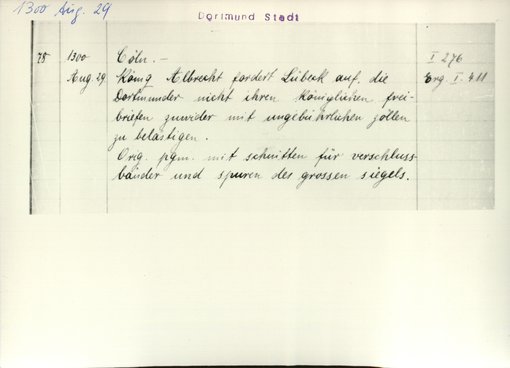 1300 Aug. 29
Dortmund Stadt
78 1300 Cöln. – I 276
Aug. 29 König Albrecht fordert Lübeck auf, die Erg. I. 411
Dortmunder nicht ihren königlichen frei-
briefen zuwider mit ungebührlichen zöllen
zu belästigen.
Orig. pgm. mit schnitten für verschluss-
bänder und spuren des grossen siegels.